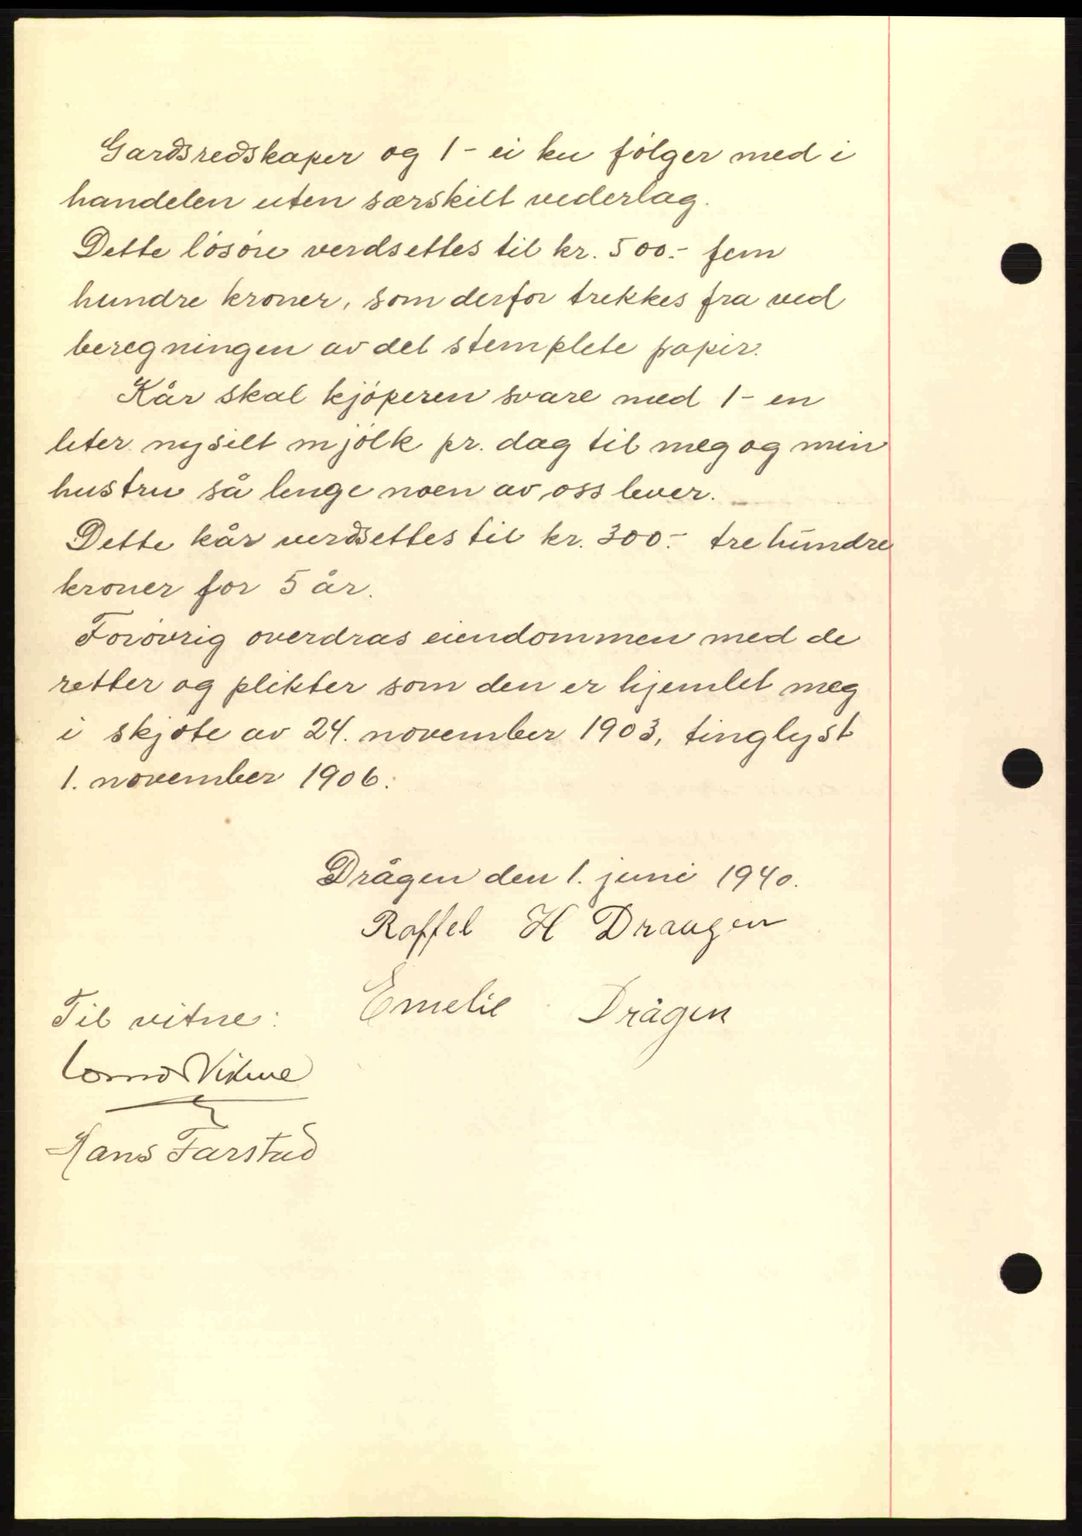 Gardsredskaper og 1- ei ku følger med i
handelen uten særskilt vederlag.
Dette løsøre verdsettes til kr. 500.- fem
hundre kroner, som derfor trekkes fra ved
beregningen av det stemplete papir.
Kår skal kjøperen svare med 1- en
liter nysilt mjølk pr. dag til meg og min
hustru så lenge noen av oss lever.
Dette kår verdsettes til kr. 300.- tre hundre
kroner for 5 år.
Forøvrig overdras eiendommen med de
retter og plikter som den er hjemlet meg
i skjøte av 24. november 1903, tinglyst
1. november 1906.
Drågen den 1. juni 1940.
Raffel H Draugen
Emelie Drågen
Til vitne:
Hans Farstad